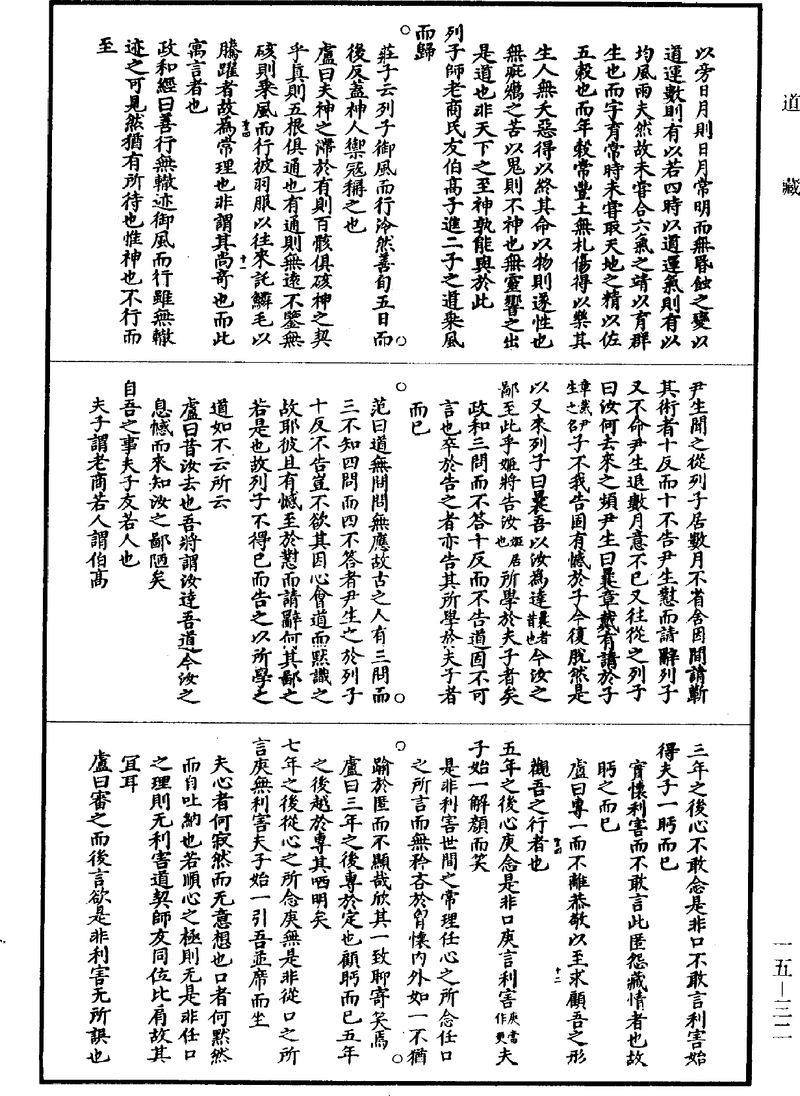 道藏
以旁日月則日月常明而無昏蝕之變以
道運數則有以若四時以道運氣則有以
均風雨夫然故未嘗合六氣之靖以育群
生也而字育常時未嘗取天地之精以佐
五穀也而年穀常豐土無札傷得以樂其
生人無夭惡得以終其命以物則遂性也
無疵癘之苦以鬼則不神也無靈響之出
是道也非天下之至神孰能與於此
列子師老商氏友伯高子進二子之道乘風
而歸
莊子云列子御風而行泠然善旬五日而
後反蓋神人禦寇稱之也
盧曰夫神之滯於有則百骸俱礙神之契
乎真則五根俱通也有通則無遠不鑒無
礙則乘風而行被羽服以往來託鱗毛以
騰躍者故為常理也非謂其尚奇也而此
寓言者也
政和經曰善行無轍迹御風而行雖無轍
迹之可見然猶有所待也惟神也不行而
至
尹生聞之從列子居數月不省舍因間請蘄
其術者十反而十不告尹生懟而請辭列子
又不命尹生退數月意不已又往從之列子
曰汝何去來之頻尹生曰曩章戴有請於子
章戴尹生之名子不我告固有憾於子今復脫然是
以又來列子曰曩吾以汝為達曩者昔也今汝之
鄙至此乎姬將告汝姬居也所學於夫子者矣
政和三問而不答十反而不告道固不可
言也卒於告之者亦告其所學於夫子者
而已
范曰道無問問無應故古之人有三問而
三不知四問而四不答者尹生之於列子
十反不告豈不欲其因心會道而默識之
故耶彼且有憾至於懟而請辭何其鄙之
若是也故列子不得已而告之以所學之
道如不云所云
盧曰昔汝去也吾將謂汝達吾道今汝之
息憾而來知汝之鄙陋矣
自吾之事夫子友若人也
夫子謂老商若人謂伯高
三年之後心不敢念是非口不敢言利害始
得夫子一眄而已
實懷利害而不敢言此匿怨藏情者也故
眄之而已
盧曰專一而不離恭敬以至求顧吾之形
觀吾之行者也
五年之後心庚念是非口庚言利害庚當作更夫
子始一解顏而笑
是非利害世間之常理任心之所念任口
之所言而無矜吝於胷懷内外如一不猶
踰於匿而不顯哉欣其一致聊寄笑焉
盧曰三年之後專於定也顧眄而已五年
之後越於專其哂明矣
七年之後從心之所念庚無是非從口之所
言庚無利害夫子始一引吾並席而坐
夫心者何寂然而无意想也口者何默然
而自吐納也若順心之極則无是非任口
之理則无利害道契師友同位比肩故其
宜耳
盧曰審之而後言欲是非利害无所誤也
一五—三二